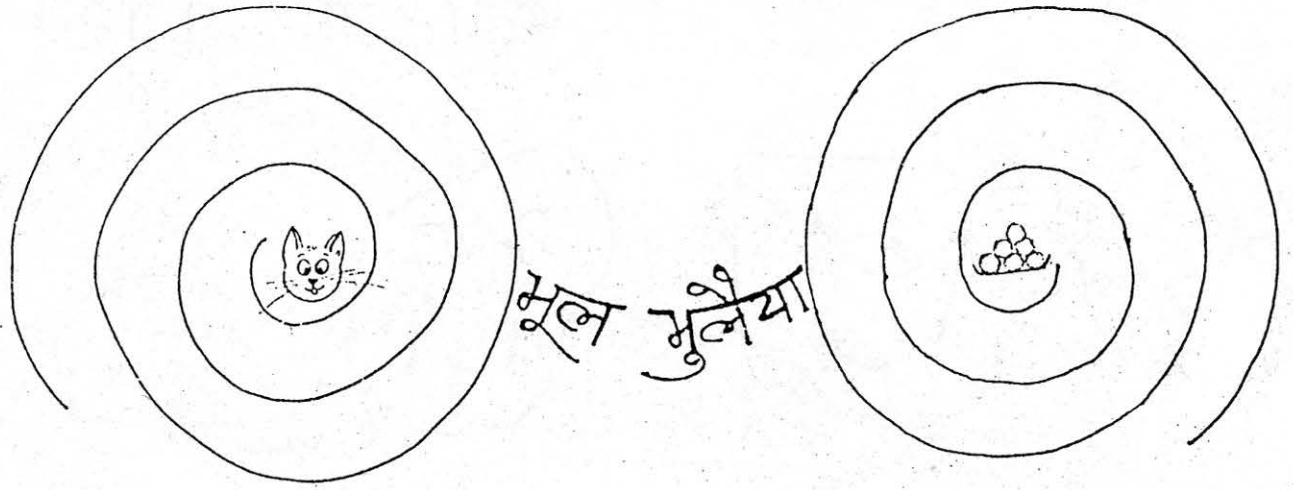 भूल भुलैया